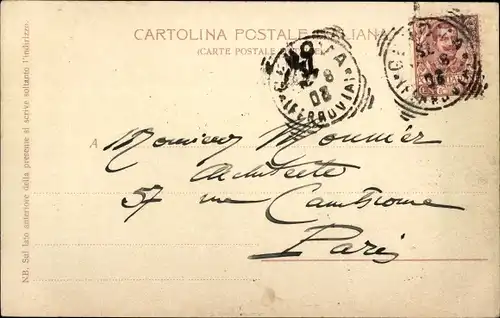 CARTOLINA POSTALE ITALIANA
(CARTE POSTALE
GENOVA
8
02
(FERROVIA)
8
02
(FERROVIA)
A Monsieur Mounier
Architecte
57 rue Cambronne
Paris
N.B. Sul lato anteriore della presente si scrive soltanto l'indirizzo.